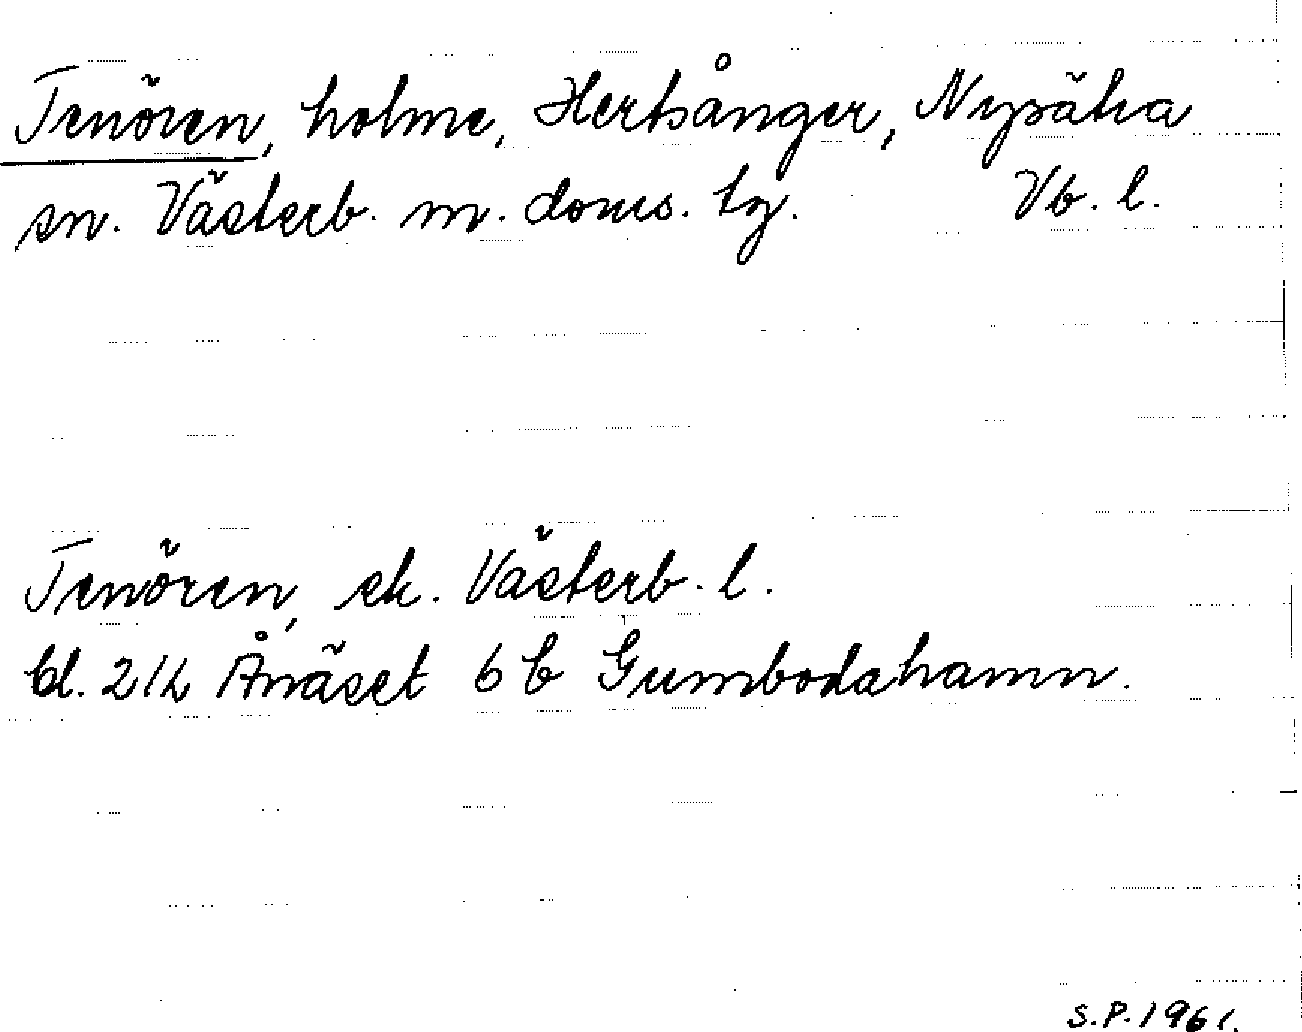 Tenören, holme, Hertsånger, Nysätra
sn. Västerb. m. doms. tg. Vb. l.
Tenören, ek. Västerb. l.
bl. 21L Ånäset 6 b Gumbodahamn.
S.P. 1961.